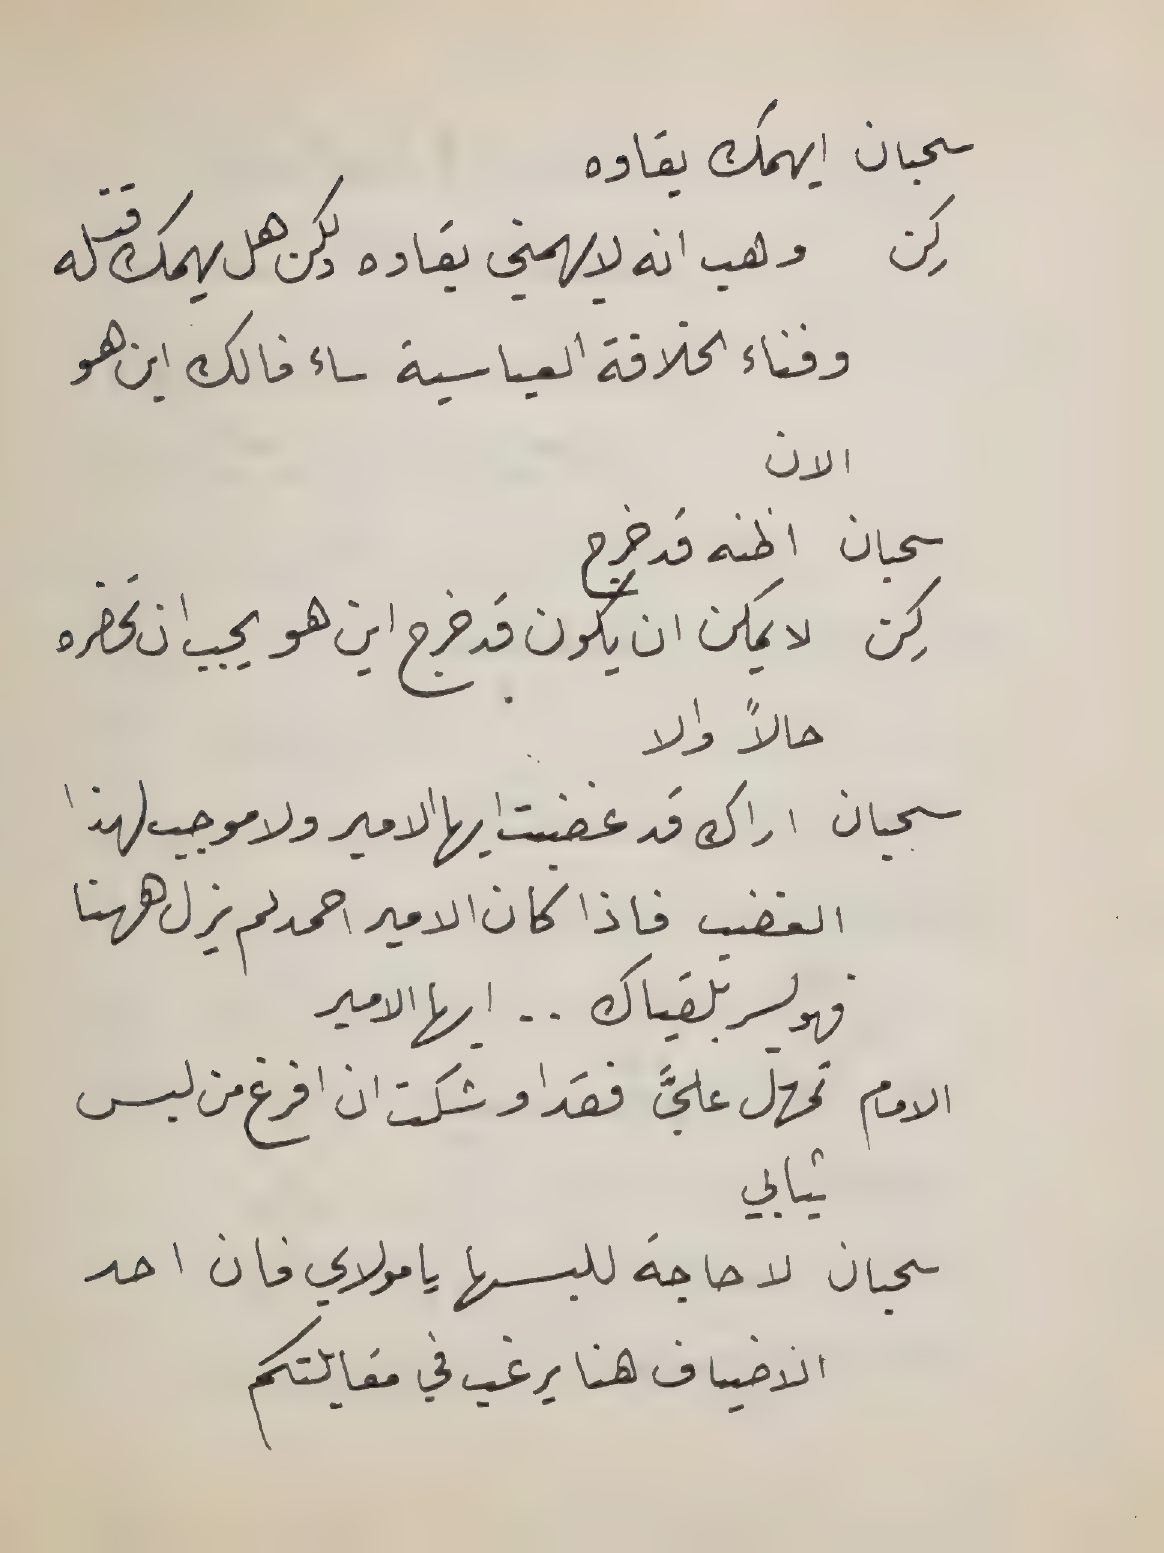 سحبان ايهمك بقاوه
كِن وهب انه لا يهمني بقاوه ولكن هل يهمك قتله
وفناء الخلافة العباسية ساء فالك اين هو
الان
سحبان اظنه قد خرج
كِن لا يمكن ان يكون قد خرج اين هو يجب ان تحضره
حالاً والا
سحبان اراك قد غضبت ايها الامير ولا موجب لهذا
الغضب فاذا كان الامير احمد لم يزل ههنا
فهو يسر بلقياك .. ايها الامير
الامام تمهل عليَّ فقد اوشكت ان افرغ من لبس
ثيابي
سحبان لا حاجة للبسها يا مولاي فان احد
الاضياف هنا يرغب في مقابلتكم